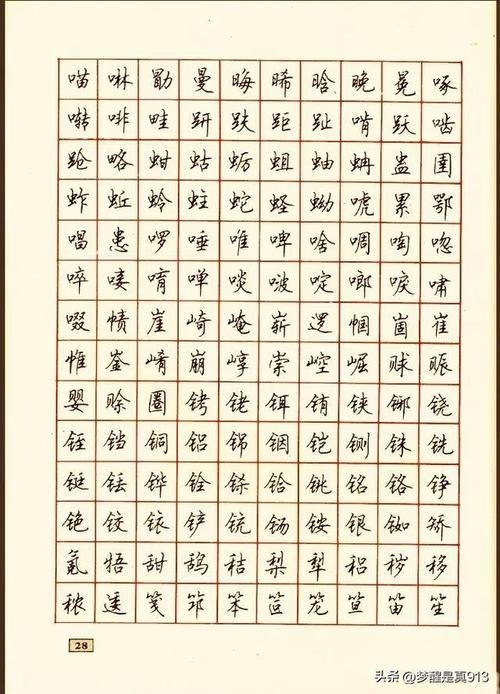 喵啉勖曼晦晞晗晚冕啄
啭啡畦趼趺距趾啃跃啮
跄略蚶蛄蛎蛆蚰蚺蛊圉
蚱蚯蛉蛀蛇蛏蚴唬累鄂
唱患啰唾唯啤啥啁啕唿
啐唼唷啴啖啵啶啷唳啸
啜帻崖崎崦崭逻帼崮崔
帷崟崤崩崞崇崆崛赇赈
婴赊圈铐铑铒铕铗铘铙
铚铛铜铝铞铟铠铡铢铣
铤铥铧铨铩铪铫铭铬铮
铯铰铱铲铳铴铵银铷矫
氪牾甜鸹秸梨犁稆秽移
秾逶笺筇笨笸笼笪笛笙
28
头条 @梦醒是真913